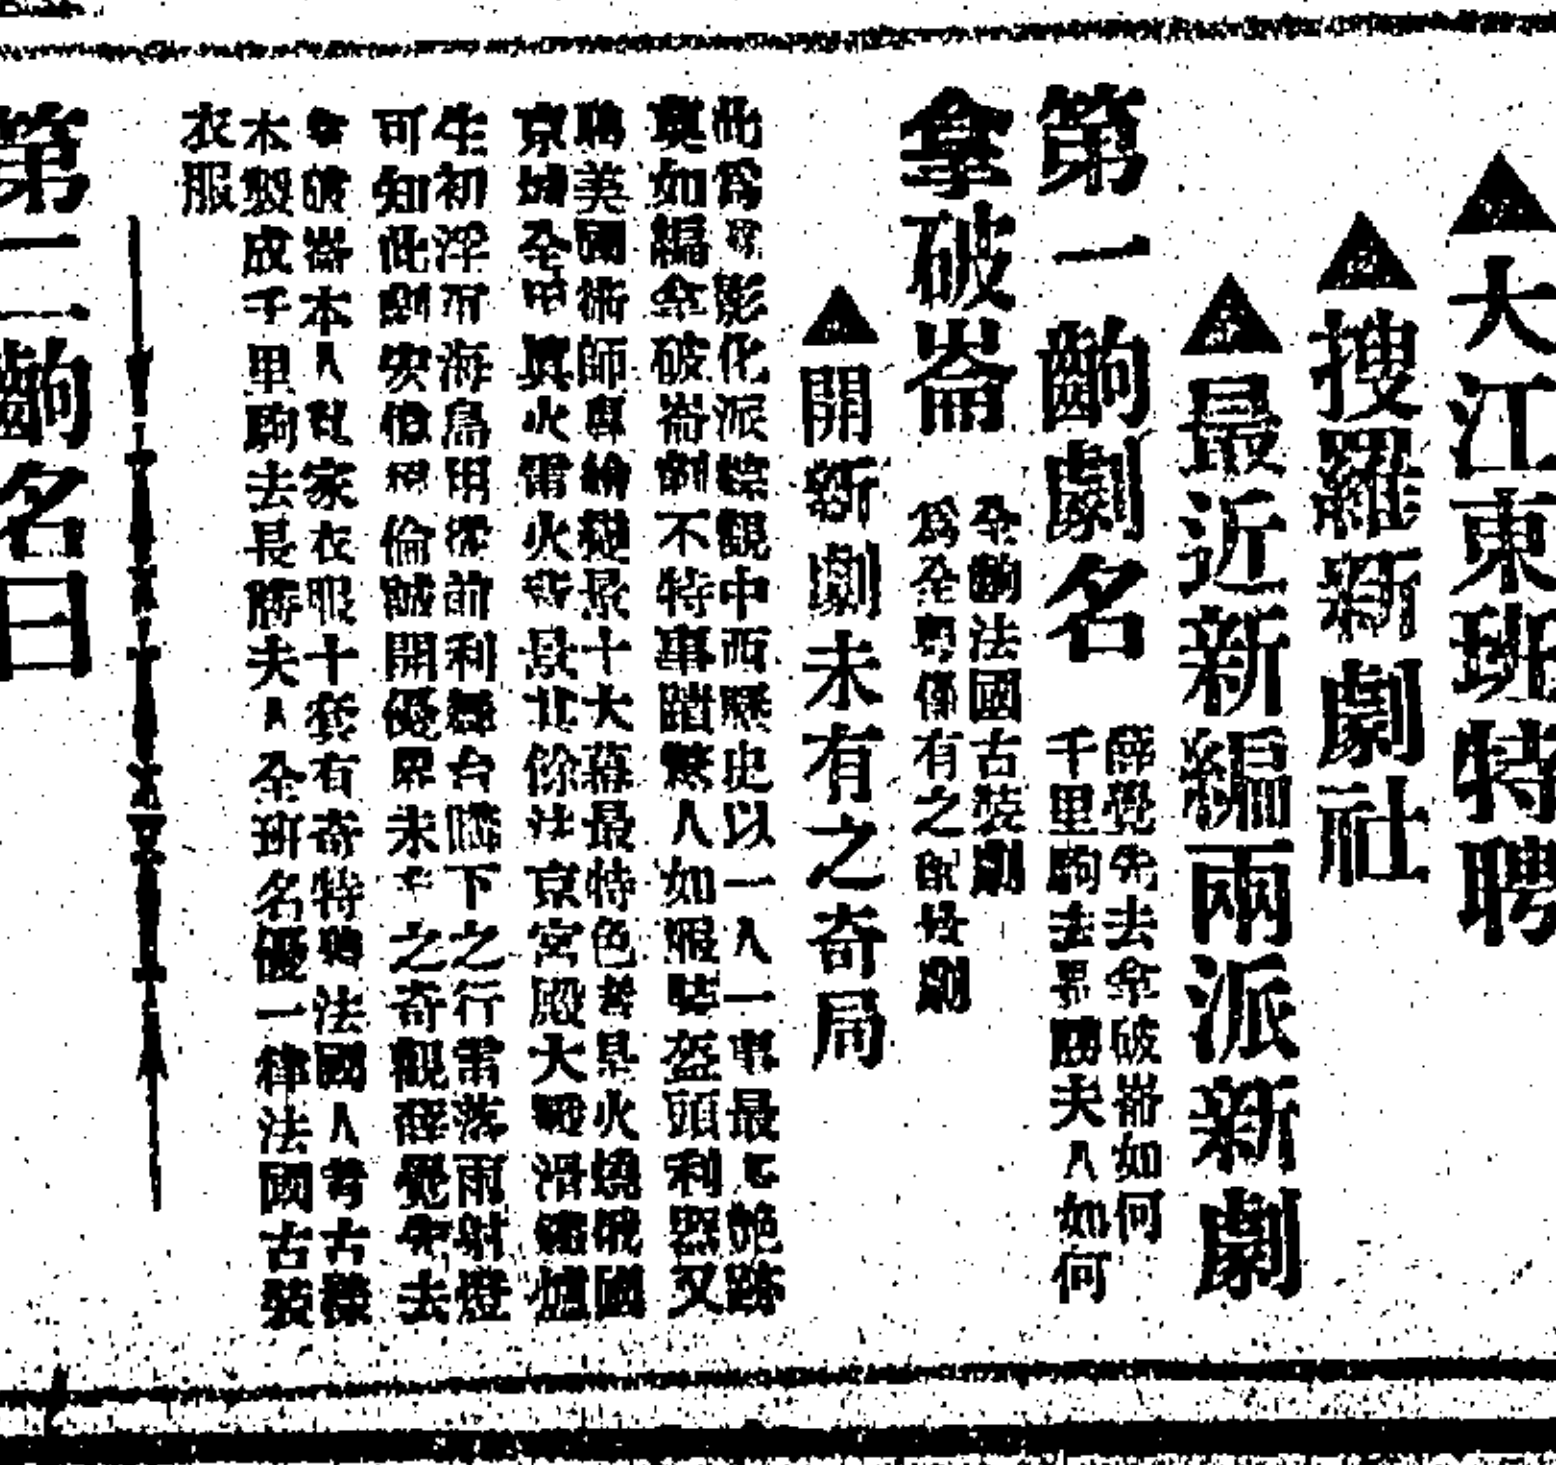 ▲大江東班特聘
▲搜羅新劇社
▲最近新編兩派新劇
第一齣劇名
薛覺先去拿破崙如何
千里駒去長勝夫人如何
拿破崙
全齣法國古裝劇
為全粵僅有之劇
▲開新劇未有之奇局
此為影化派綜觀中西歷史以一人一事最艷跡
莫如編拿破崙劇不特事蹟驚人如服裝盔頭利器又
聘美國術師專繪變景十大幕最特色者是火燒俄國
京城全甲真火雷火景其餘法京宮殿大戰滑鐵爐
生初浮海鳥用前利舞台下之行雷落雨射燈
可知此劇倫誠開優界未之奇觀薛覺先去
拿破崙本人私家衣服十套有奇特聘法國人考古樣
本製成千里駒去長勝夫人全班名優一律法國古裝
衣服
第二齣名曰